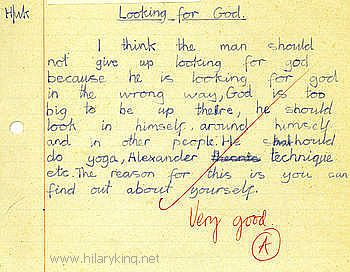 H/wk
Looking for God.
I think the man should
not give up looking for god
because he is looking for god
in the wrong way, God is too
big to be up there, he should
look in himself, around himself
and in other people. He should
do yoga, Alexander technique
etc. The reason for this is you can
find out about yourself.
Very good.
A
www.hilaryking.net